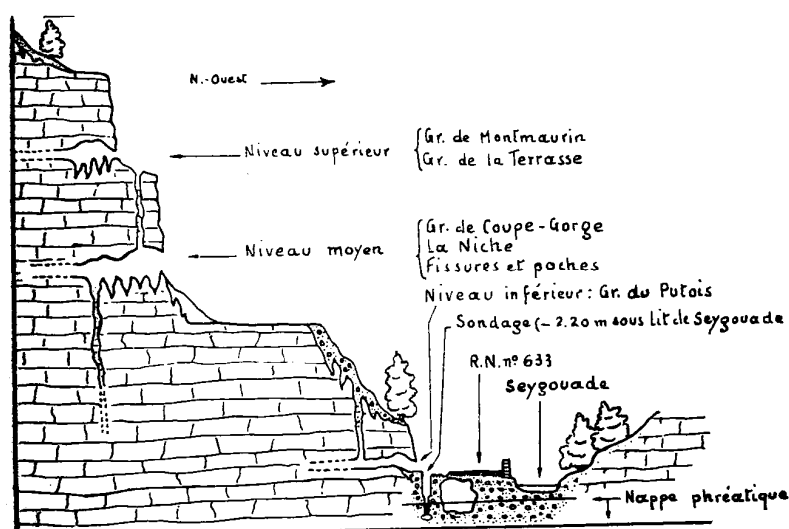 N.-Ouest
Niveau supérieur
Gr. de Montmaurin
Gr. de la Terrasse
Niveau moyen
Gr. de Coupe-Gorge
La Niche
Fissures et poches
Niveau inférieur: Gr. du Putois
Sondage (- 2.20 m sous Lit de Seygouade
R.N. nº 633
Seygouade
Nappe phréatique